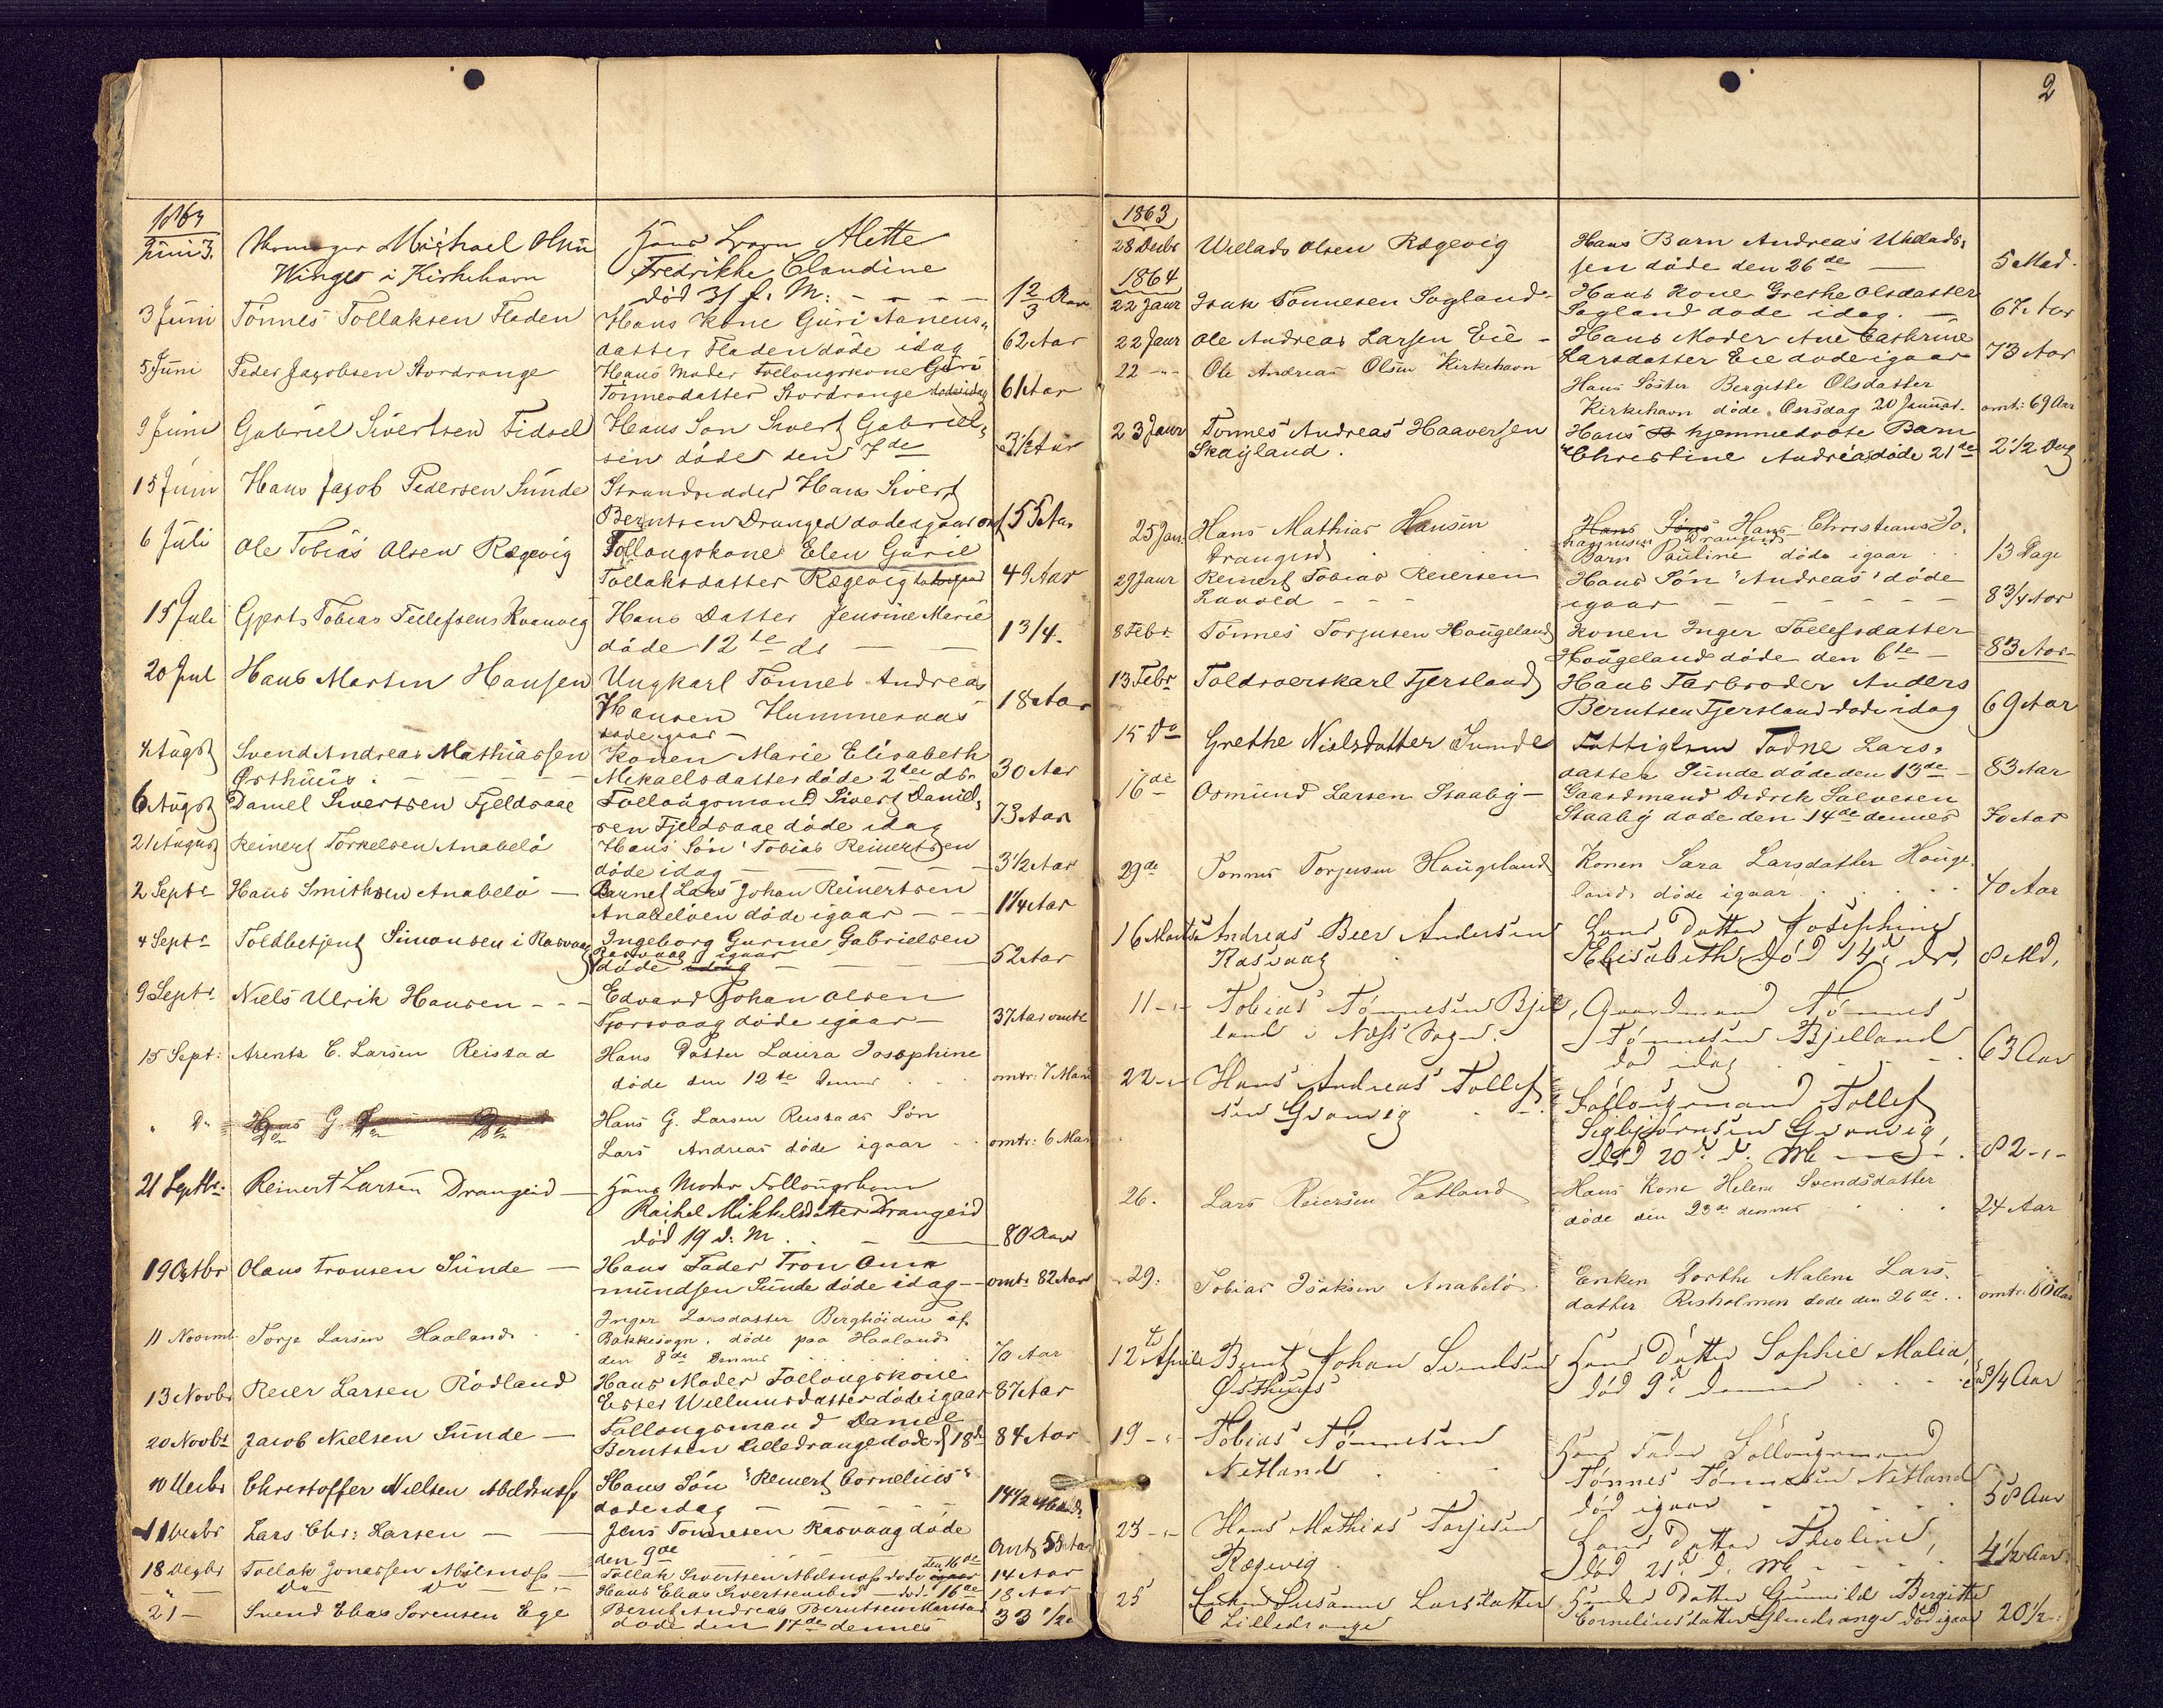 1863
Juni 3. Michael Olsen Hans Barn Alette
Winges i Kirkehavn Fredrikke Claudine
død 31 f. M: - - - - 1 2/3 Aar
3 Juni Tønnes Tollaksen Fladen Hans Kone Guri Aanens„
datter Fladen døde idag 62 Aar
5 Juni Peder Jacobsen Stordrange Hans Moder Follougskone Guri
Tønnesdatter Stordrange døde idag 61 Aar
9 Juni Gabriel Sivertsen Fidsel Hans Søn Sivert Gabriel„
sen døde den 7de 3½ Aar
15 Juni Hans Jacob Pedersen Sunde Strandsidder Hans Sivert
Berntsen Dranged døde igaar omt 55 Aar
6 Juli Ole Tobias Olsen Rægevig Follougskone Elen Gurie
Tollaksdatter Rægevig døde igaar 49 Aar
15 Juli Gjerts Tobias Tellefsens Kvanvig Hans Datter Jensine Marie
døde 12te ds — — 1 3/4.
20 Jul Hans Martin Hansen Ungkarl Tønnes Andreas
Hansen Hummeraas 18 Aar
døde igaar —
4 Augst Svend Andreas Mathiassen Konen Marie Elisabeth
Østhuus. — — — Mikaelsdatter døde 2den ds. 30 Aar
6 Augst Daniel Sivertsen Fjeldsaae Follougsmand Sivert Daniel„
sen Fjeldsaae døde idag 73 Aar
21 August Reinert Torkelsen Anabelø Hans Søn Tobias Reinertsen
døde idag — — — 3½ Aar
2 Septr Hans Smithsen Anabelø — Barnet Lars Johan Reinertsen
Anabeløen døde igaar — — 1¼ Aar
4 Septr Toldbetjent Simonsen i Rasvaag Ingeborg Gurine Gabrielsen
Rasvaag igaar
døde idag — — — 52 Aar
9 Septr Niels Ulrik Hansen - - - Edvard Johan Olsen
Tjorsvaag døde igaar — 37 Aar omtr
15 Sept: Arentz C. Larsen Reistad Hans Datter Laura Josephine
døde den 12te dennes . . . omtr: 7 Maan
" D" Hans G. Hans G. Larsen Reistads Søn
Lars Andreas døde igaar . . omtr: 6 Maa
21 Septbr. Reinert Larsen Drangeid — Hans Moder Follougskone
Rachel Mikkelsdatter Drangeid
død 19 d. M. . — 80 Aar
19 Octbr Olaus Tronsen Sunde — Hans Fader Tron Om
mundsen Sunde døde idag — omtr 82 Aar
11 Novemb Torje Larsen Haaland . . Inger Larsdatter Berghøiden af
Bakkesogn. døde paa Haaland
den 8de dennes . . . 70 Aar
13 Novbr Reier Larsen Rødland Hans Moder Follougskone
Ester Willumsdatter døde igaar 87 Aar
20 Novbr Jacob Nielsen Sunde — Follougsmand Daniel
Berntsen Lilledrange døde d 18de 84 Aar
10 Decbr Christoffer Nielsen Abelsnæs Hans Søn "Reinert Cornelius"
døde idag — — — 14½ Maand:
11 Decbr Lars Chr: Larsen — — Jens Tønnesen Rasvaag døde
den 9de omtr 58 Aar
18 Decbr Tollak Jonassen Abelsnæs — Tollak Sivertsen Abelsnæs døde igaar den 16de 14 Aar
— " Do Do — " — Hans Elias Sivertsen ibid — død 16de 18 Aar
21 — Svend Elias Sørensen Ege Bernt Andreas Berntsen
døde den 17de dennes 33 1/2
2
1863
28 Decbr Willads Olsen Rægevig Hans Barn Andreas Willads„
sen døde den 26de — 5 Mad.
1864
22 Janr Isak Tønnesen Sogland - Hans Kone Grethe Olsdatter
Sogland døde idag. — 67 Aar
22 Janr Ole Andreas Larsen Eie - Hans Moder Ane Cathrine
Larsdatter Eie døde igaar 73 Aar
22 -"- Ole Andreas Olsen Kirkehavn Hans Søster Bergitte Olsdatter
Kirkehavn døde Onsdag 20 Januar. omtr: 69 Aar
23 Janr Tønnes Andreas Haaversen Hans hjemmedøbte Barn
Skagland. Christine Andrea døde 21de 2½ Dag
25 Jan. Hans Mathias Hansen Hans Søns Hans Christians Jo.
hannesen Drangeids
Drangeid . . . Barn Pauline døde igaar . . 13 Dage
29 Janr Reinert Tobias Reiersen Hans Søn "Andreas" døde
Lavold - - - igaar — — — 8 3/4 Aar
8 Febr. Tønnes Torjusen Hougeland Konen Inger Tollefsdatter
Hougeland døde den 6te — 83 Aar
13 Febr Toldroerskarl Tjersland Hans Farbroder Anders
Berntsen Tjersland døde idag 69 Aar
15 Do Grethe Nielsdatter Sunde Fattiglem Tadne Lars„
datter Sunde døde den 13de — 83 Aar
16de Osmund Larsen Staaby — Gaardmand Didrik Salvesen
Staaby døde den 14de dennes 70 Aar
29de Tønnes Torjusen Haugeland Konen Sara Larsdatter Houge.
land døde igaar . . . 40 Aar
16 Marts Andreas Beer Andersen Hans Datter Josephine
Rasvaag . Elisabeth, død 14de ds. 8 Md.
11 -"- Tobias Tønnesen Bjel„ Gaardmand Tønnes
land i Næss Sogn. Tønnesen Bjelland
død idag . . . 63 Aar
22 -"- Hans Andreas Tollef Follougsmand Tollef
sen Gvanvig . . Sigbjørnsen Gvanvig,
død 20de d. M. — . 82 -"-
26. Lars Reiersen Vatland Hans Kone Helene Svendsdatter
døde den 23de dennes . . . 24 Aar
29. Tobias Isaksen Anabelø Enken Dorthe Malene Lars.
datter Risholmen døde den 26de . . omtr: 60 Aar
12te April Bernt Johan Svendsen Hans Datter Sophie Malia,
Østhuus død 9de dennes . . . 3/4 Aar
19 -"- Tobias Tønnesen Hans Fader Follougsmand
Netland . . . Tønnes Tønnesen Netland
død igaar - - . 58 Aar
23 -"- Hans Mathias Torjesen Hans Datter Theoline,
Rægevig . død 21de d. M - - - 4½ Aar
25 Enken Susanne Larsdatter Hendes Datter Gunnild Bergitte
Lilledrange Corneliusdatter død igaar 20½ -"-